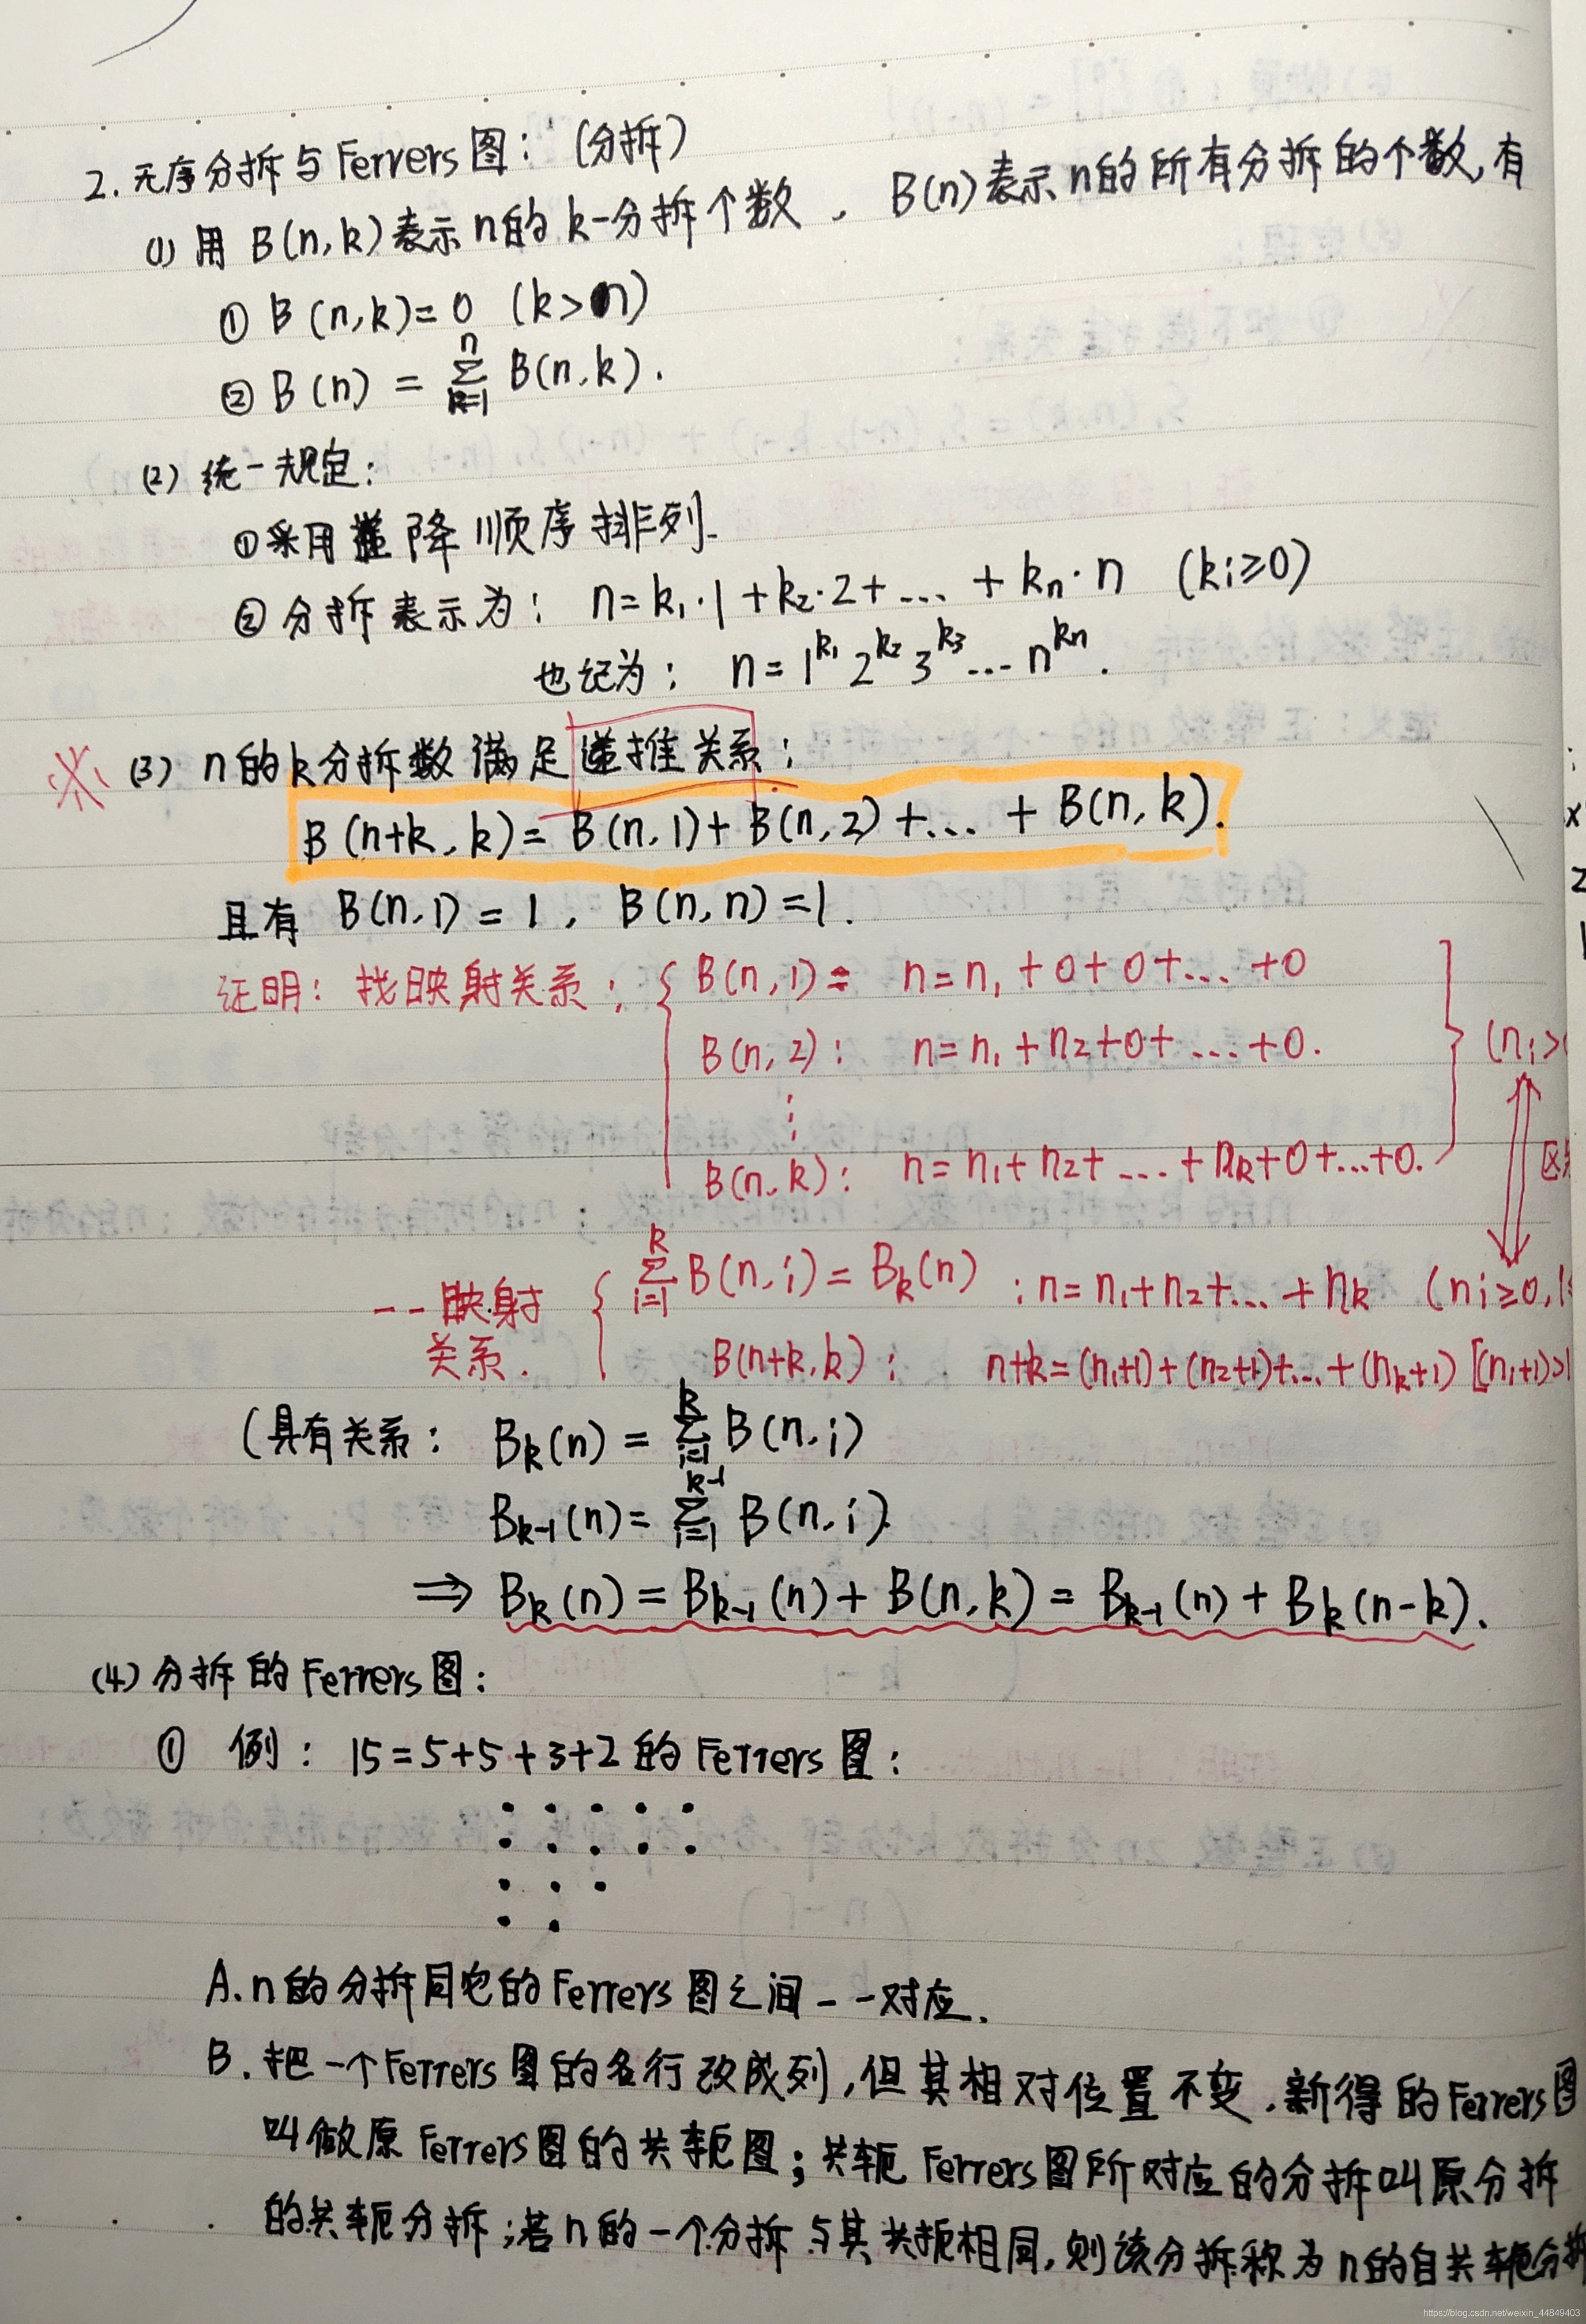 2. 无序分拆与Ferrers图：(分拆)
(1) 用 B(n,k)表示n的k-分拆个数，B(n)表示n的所有分拆的个数,有
① B(n,k)=0 (k>n)
② B(n) = ∑_{k=1}^{n} B(n,k).
(2) 统一规定：
①采用递降顺序排列.
② 分拆表示为： n=k₁·1+k₂·2+...+kₙ·n (ki≥0)
也记为： n=1^{k₁} 2^{k₂} 3^{k₃}...n^{kₙ}.
※ (3) n的k分拆数满足递推关系：
B(n+k,k)=B(n,1)+B(n,2)+...+B(n,k).
且有 B(n,1)=1, B(n,n)=1.
证明：找映射关系： { B(n,1): n=n₁+0+0+...+0
B(n,2): n=n₁+n₂+0+...+0. } (ni>
⋮
B(n,k): n=n₁+n₂+...+nk+0+...+0.
∑_{i=1}^{k} B(n,i)=Bk(n) : n=n₁+n₂+...+nk (ni≥0,1
一一映射
关系. { B(n+k,k): n+k=(n₁+1)+(n₂+1)+...+(nk+1) [(ni+1)≥1
(具有关系： Bk(n) = ∑_{i=1}^{k} B(n,i)
Bk-1(n)= ∑_{i=1}^{k-1} B(n,i)
⇒ Bk(n)=Bk-1(n)+B(n,k)=Bk-1(n)+Bk(n-k).
(4) 分拆的Ferrers图：
① 例：15=5+5+3+2的Ferrers图：
A. n的分拆同它的Ferrers图之间一一对应.
B. 把一个Ferrers图的各行改成列,但其相对位置不变,新得的Ferrers图
叫做原Ferrers图的共轭图；共轭Ferrers图所对应的分拆叫原分拆
的共轭分拆；若n的一个分拆与其共轭相同,则该分拆称为n的自共轭分拆
https://blog.csdn.net/weixin_44849403